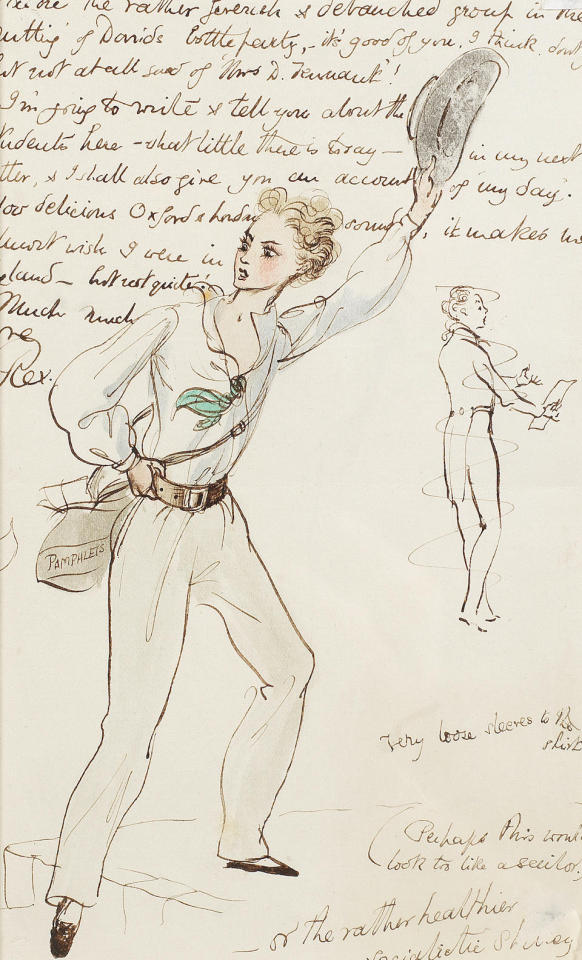 the rather feverish & debauched group in the
of David's bottleparty, - it's good of you, I think, don't
but not at all sure of "Mrs D. Tennant"!
I'm going to write & tell you about the
students here - what little there is to say - in my next
letter, & I shall also give you an account of my day.
How delicious Oxford & sounds, it makes me
almost wish I were in
England - but not quite!
Much much
love
Rex.
PAMPHLETS
very loose sleeves to the
shirt
(Perhaps this would
look too like a sailor.)
- or the rather healthier
socialistic Shelley